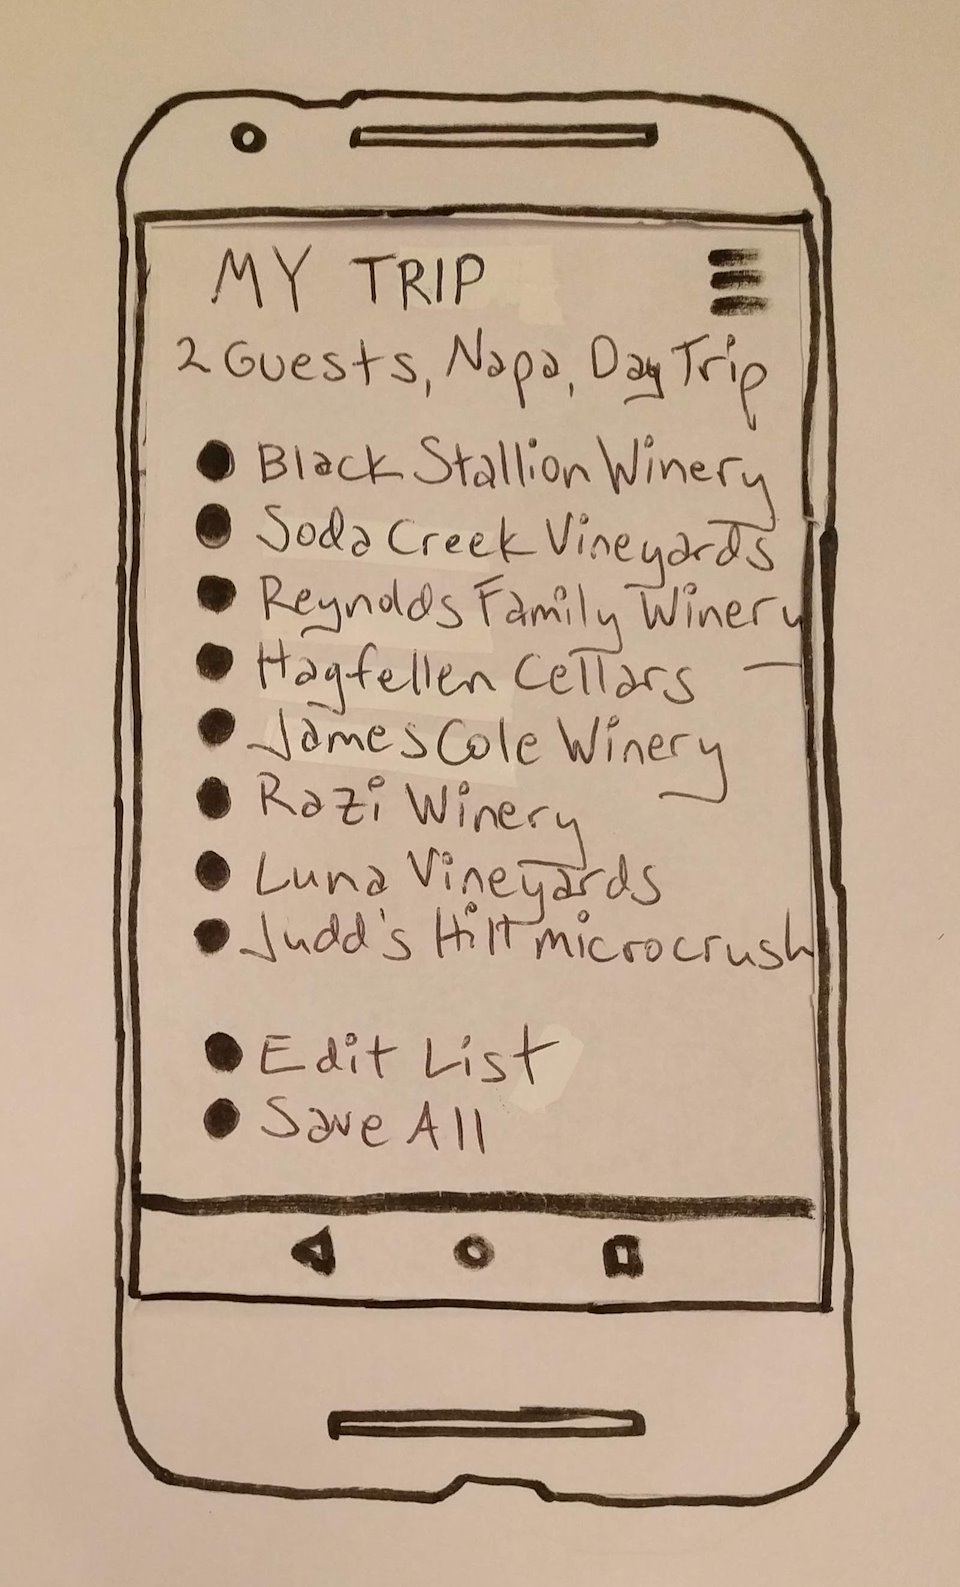 MY TRIP
2 Guests, Napa, Day Trip
Black Stallion Winery
Soda Creek Vineyards
Reynolds Family Winery
Hagfellen Cellars
James Cole Winery
Razi Winery
Luna Vineyards
Judd's Hill microcrush
Edit List
Save All